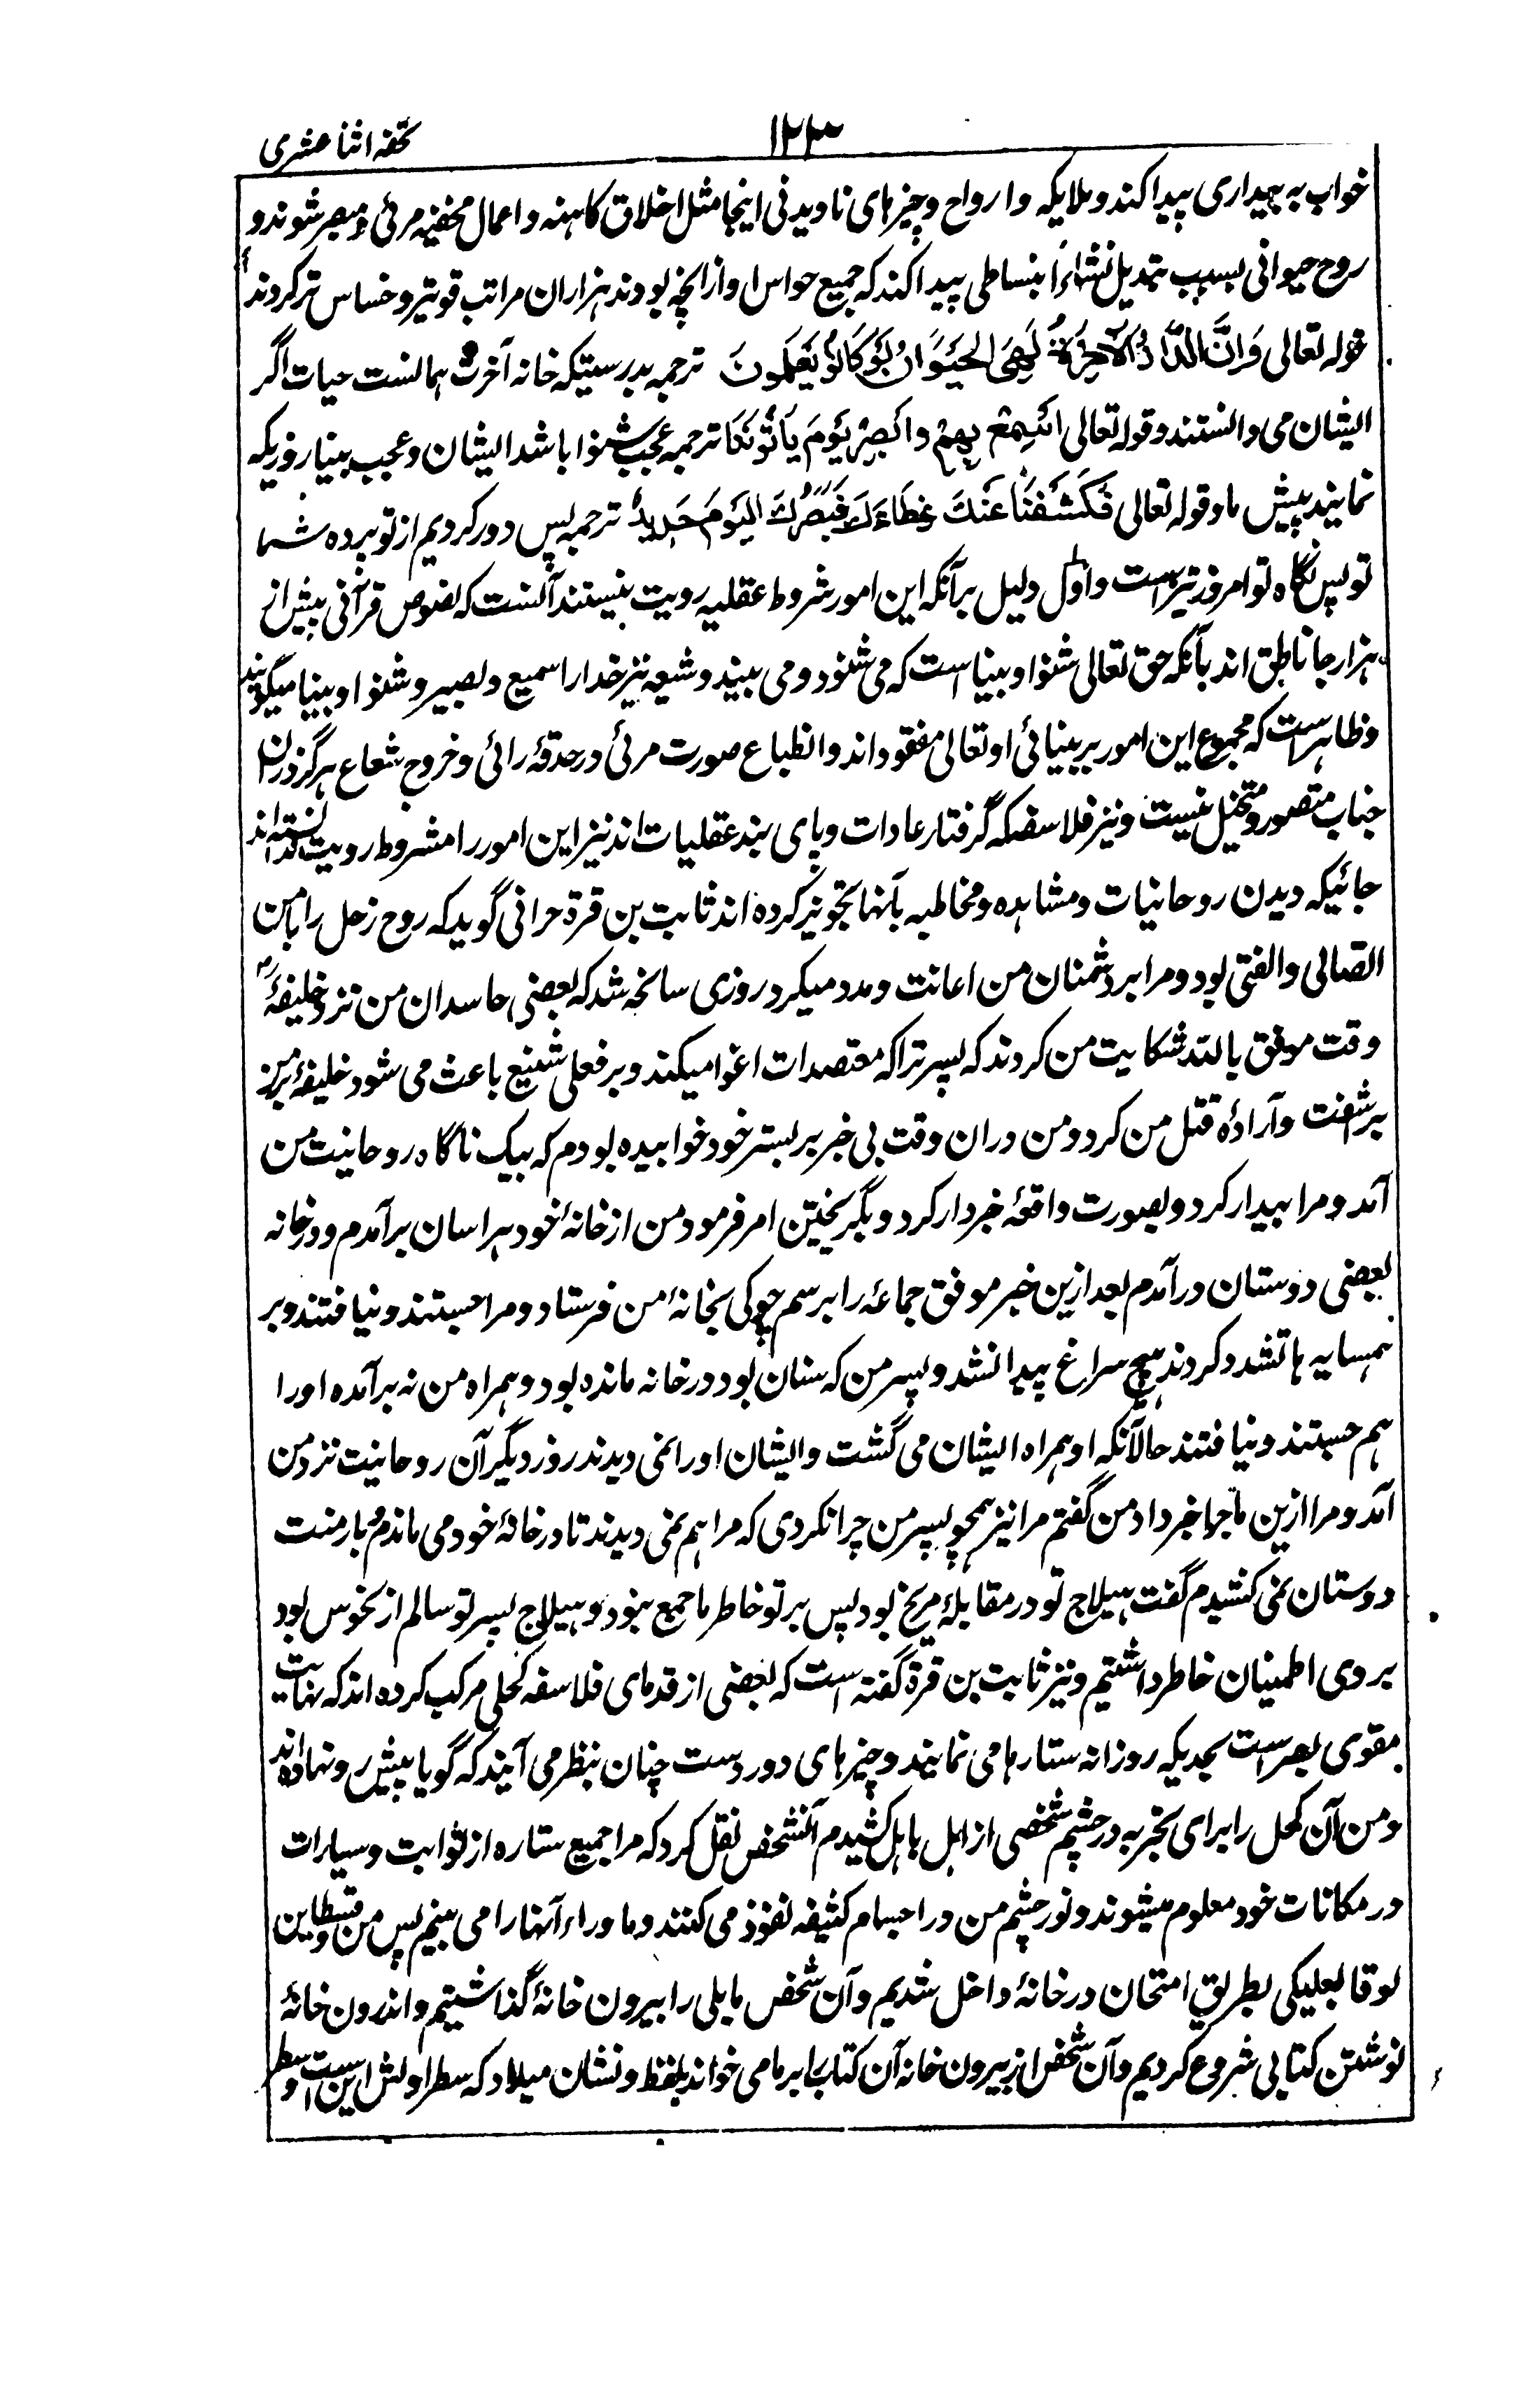 تحفه اثنا عشری
۱۲۳
خواب به بیداری پیدا کند و ملایکه و ارواح و چیزهای نادیدنی اینجا مثل اخلاق کامنه و اعمال مخفیه مرئی و مبصر شوند و
روح حیوانی بسبب تبدیل نشاءة انبساطی پیدا کند که جمیع حواس او از انچه بودند هزاران مراتب قوی تر و حساس تر گردند
قوله تعالی وَاِنَّ الدَّارَ الْاٰخِرَةَ لَهِیَ الْحَیَوَانُ لَوْ كَانُوْا یَعْلَمُوْنَ ترجمه بدرستیکه خانه آخرت همانست حیات اگر
ایشان می دانستند و قوله تعالی اَسْمِعْ بِهِمْ وَاَبْصِرْ یَوْمَ یَأْتُوْنَنَا ترجمه عجب شنوا باشد ایشان و عجب بینا روزیکه
نمایند پیش ما و قوله تعالی فَكَشَفْنَا عَنْكَ غِطَاءَكَ فَبَصَرُكَ الْیَوْمَ حَدِیْدٌ ترجمه پس دور کردیم از تو پرده شما
تو پس نگاه تو امروز تیز است و اول دلیل بر آنکه این امور شروط عقلیه رویت نیستند آنست که نصوص قرآنی بیش از
هزار جا ناطق اند بآنکه حق تعالی شنوا و بینا است که می شنود و می بیند و شیعه نیز خدا را سمیع و بصیر و شنوا و بینا میگویند
و ظاهر است که مجموع این امور بر بینائی او تعالی مفقود اند و انطباع صورت مرئی در حدقهٔ رائی و خروج شعاع هرگز در ان
جناب متصور و متخیل نیست و نیز فلاسفه که گرفتار عادات و پای بند عقلیات اند نیز این امور را مشروط رویت ندانسته اند
جائیکه دیدن روحانیات و مشاهده و مخاطبه بآنها تجویز کرده اند ثابت بن قرة حرانی گوید که روح زحل را با من
اتصالی و الفتی بود و مرا بر دشمنان من اعانت و مدد میکرد روزی سانحه شد که بعضی حاسدان من نزد خلیفهٔ
وقت موفق بالله شکایت من کردند که پسر ترا که معتضد است اغوا میکند و بر فعلی شنیع باعث می شود خلیفه بر من
برآشفت و ارادهٔ قتل من کرد و من دران وقت بی خبر بر بستر خود خوابیده بودم که بیک ناگاه روحانیت من
آمد و مرا بیدار کرد و بصورت واقعه خبردار کرد و بگریختن امر فرمود من از خانهٔ خود هراسان برآمدم و در خانه
بعضی دوستان درآمدم بعد ازین خبر موفق جماعه را برسم چوکی بخانهٔ من فرستاد و مرا جستند و نیافتند و بر
همسایه ها تشدد کردند هیچ سراغ پیدا نشد و پسر من که سنان بود در خانه مانده بود و همراه من نه برآمده او را
هم جستند و نیافتند حالآنکه او همراه ایشان می گشت و ایشان او را نمی دیدند روز دیگر آن روحانیت نزد من
آمد و مرا ازین ماجرا خبر داد من گفتم مرا نیز همچو پسر من چرا نکردی که مرا هم نمی دیدند تا در خانهٔ خود می ماندم و بار منت
دوستان نمی کشیدم گفت هیلاج تو در مقابلهٔ مریخ بود پس بر تو خاطر ما جمع نبود و هیلاج پسر تو سالم از نحوس بود
بر وی اطمینان خاطر داشتیم و نیز ثابت بن قرة گفته است که بعضی از قدمای فلاسفه کحلی مرکب کرده اند که بنهایت
مقوی بصر است بحدیکه روزانه ستارها می نمایند و چیزهای دور دست چنان بنظر می آیند که گویا پیش رو نهاده اند
و من آن کحل را برای تجربه در چشم شخصی از اهل بابل کشیدم آنشخص نقل کرد که مرا جمیع ستاره از ثوابت و سیارات
در مکانات خود معلوم میشوند و نور چشم من در اجسام کثیفه نفوذ می کنند و ماوراء آنها را می بینم پس من و قسطا بن
لوقا بعلبکی بطریق امتحان در خانهٔ داخل شدیم و آن شخص بابلی را بیرون خانهٔ گذاشتیم و اندرون خانهٔ
نوشتن کتابی شروع کردیم و آن شخص از بیرون خانه آن کتاب را بر ما می خواند بلفظ و نشان میداد که سطر اولش این است و سطر